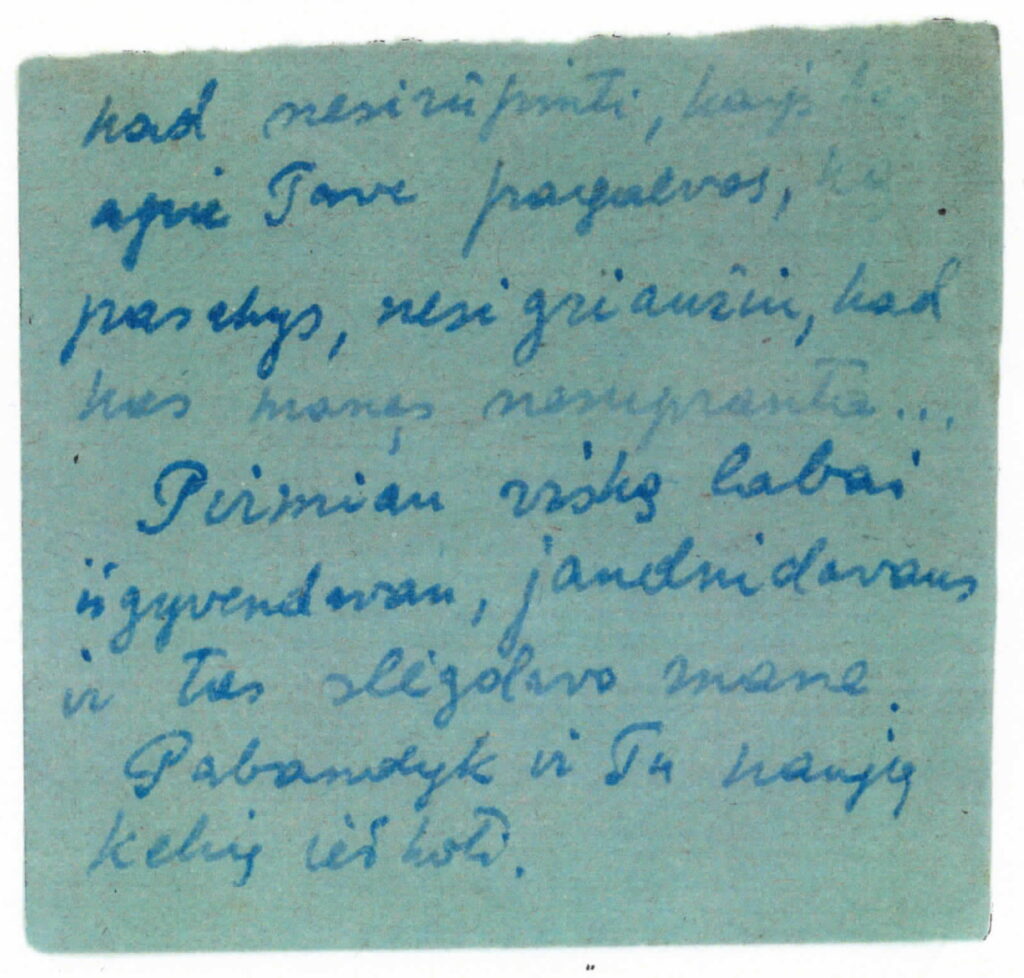 kad nesirūpinti, kaip
apie Tave pagalvos, ką
pasakys, nesigriaužiu, kad
kas manęs nesupranta...
Pirmiau viską labai
išgyvendavau, jaudindavaus
ir tas slėgdavo mane
Pabandyk ir Tu naujų
kelių ieškoti.